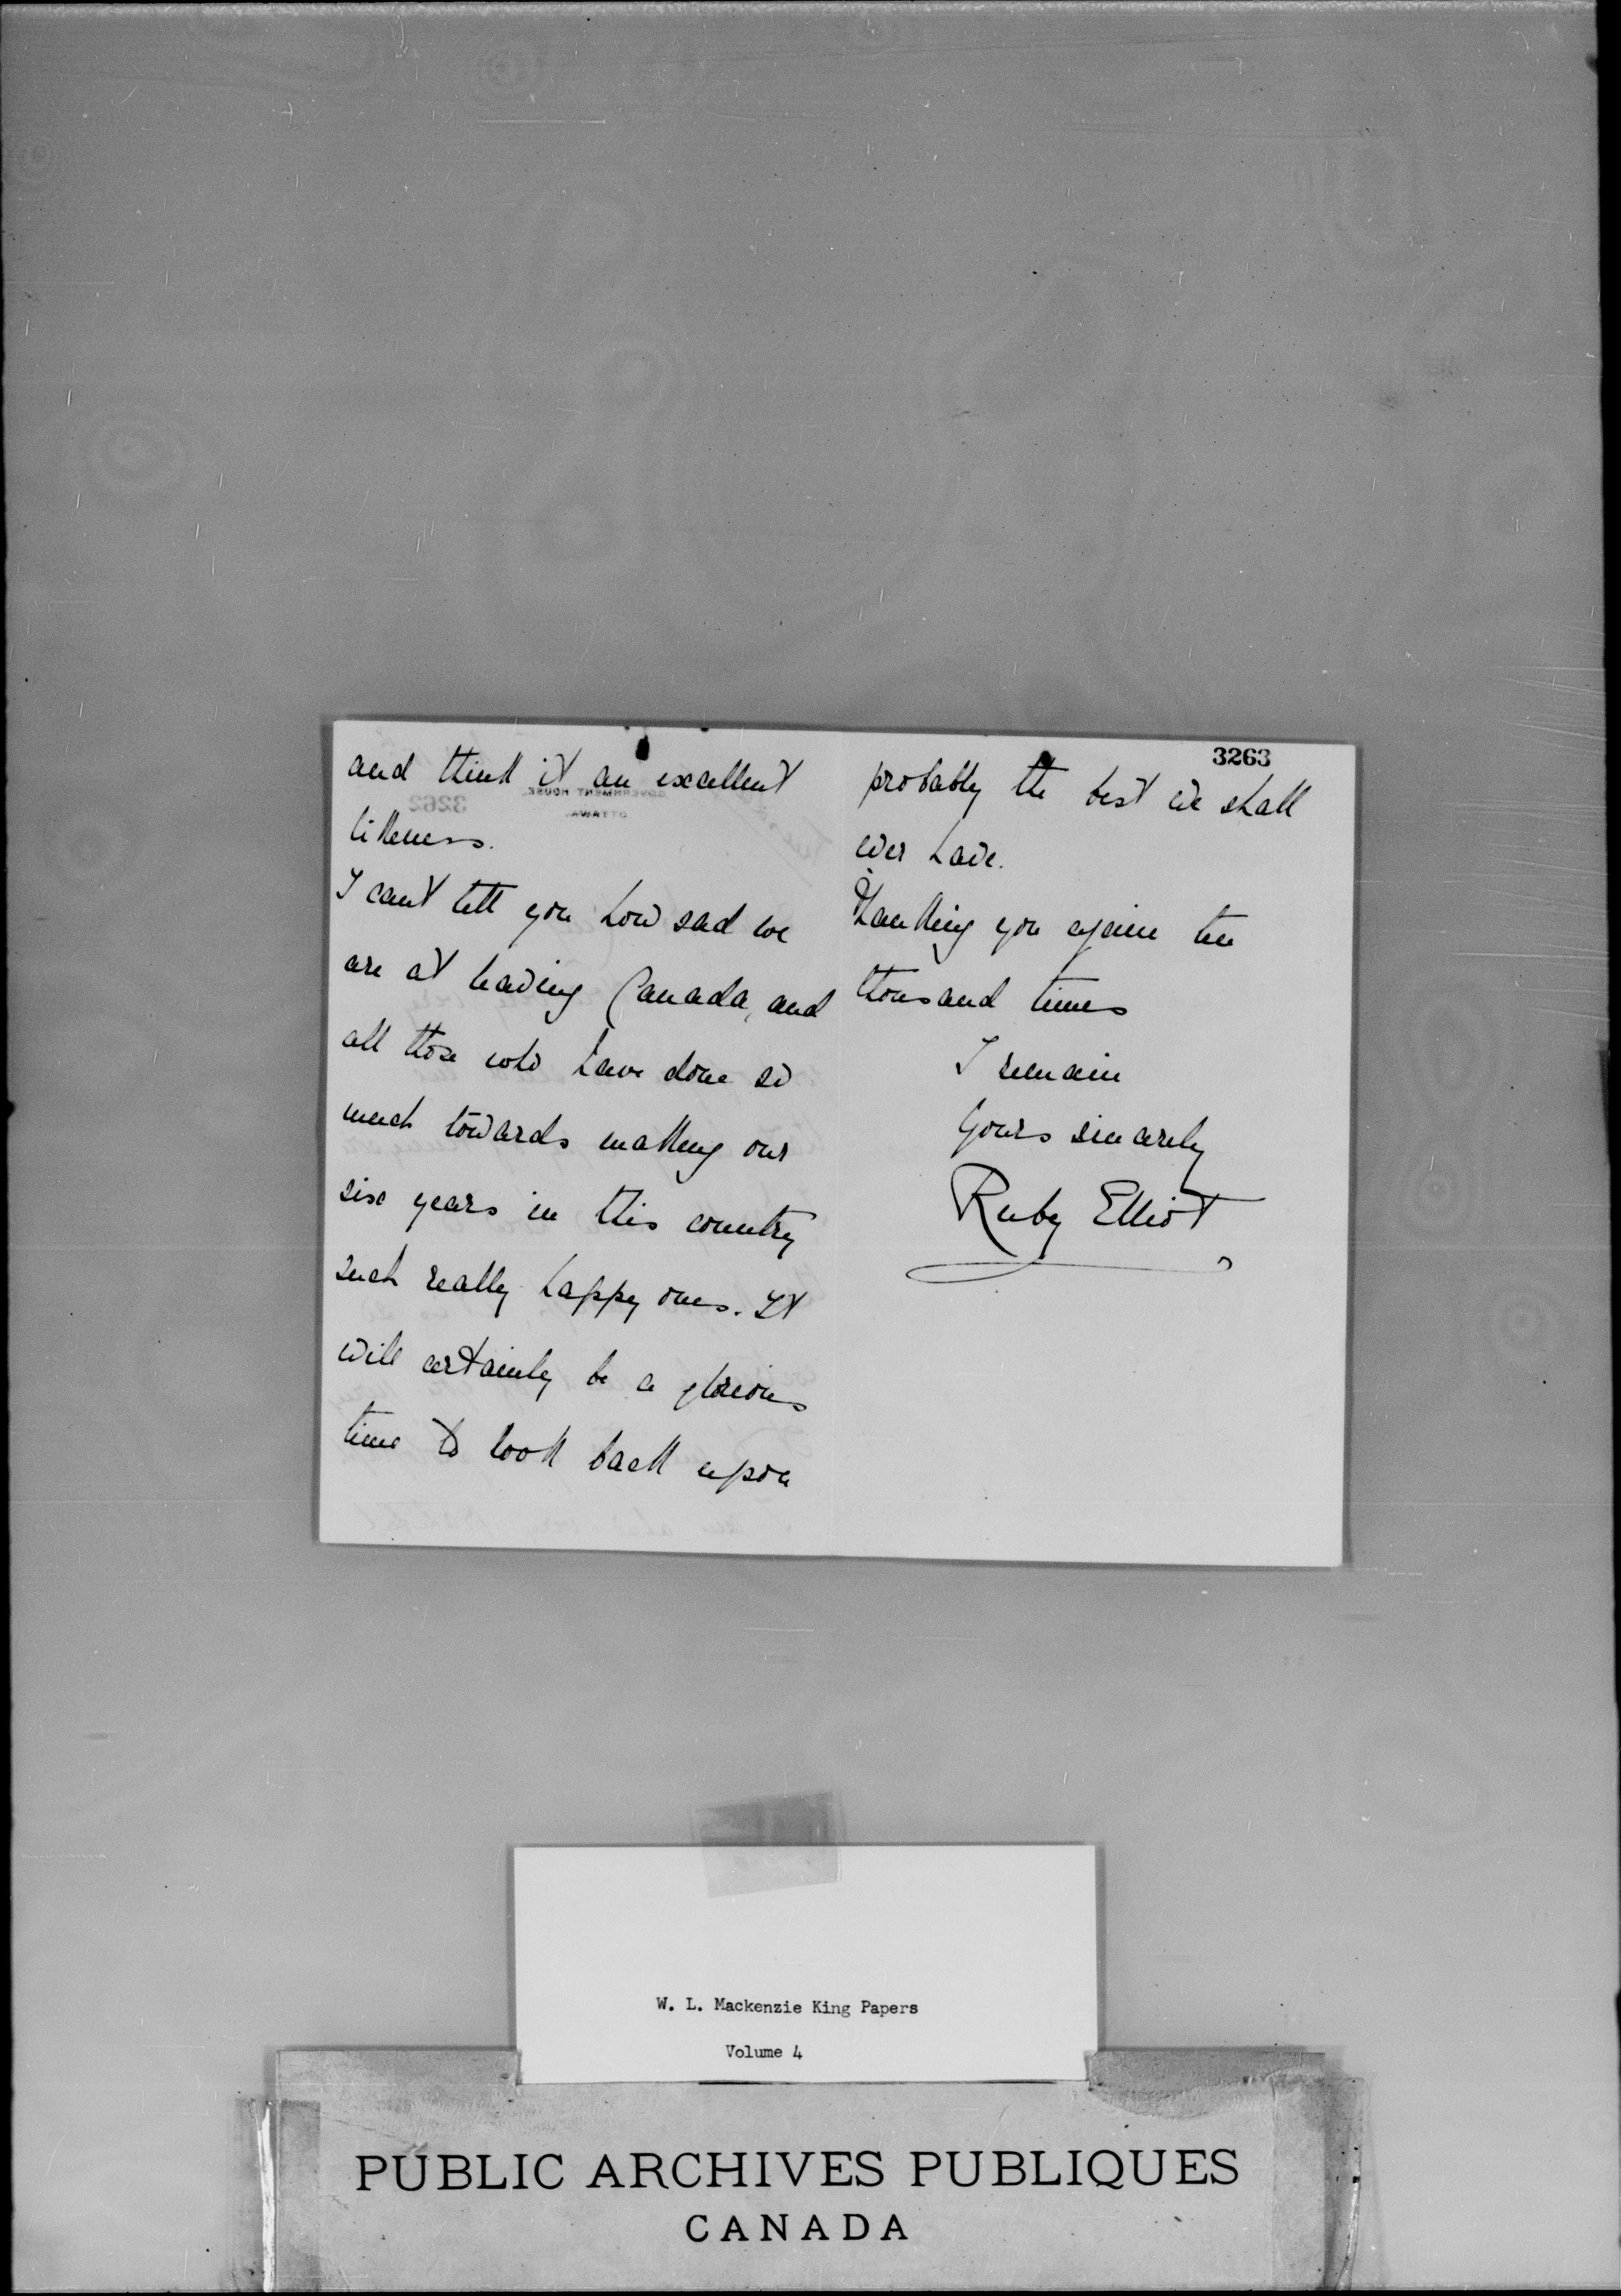 and think it an excellent
likeness.
I can't tell you how sad we
are at leaving Canada, and
all those who have done so
much towards making our
six years in this country
such really happy ones. It
will certainly be a glorious
time to look back upon
3263
probably the best we shall
ever have.
Thanking you again ten
thousand times
I remain
Yours sincerely
Ruby Elliot
GOVERNMENT HOUSE,
OTTAWA.
3262
W. L. Mackenzie King Papers
Volume 4
PUBLIC ARCHIVES PUBLIQUES
CANADA